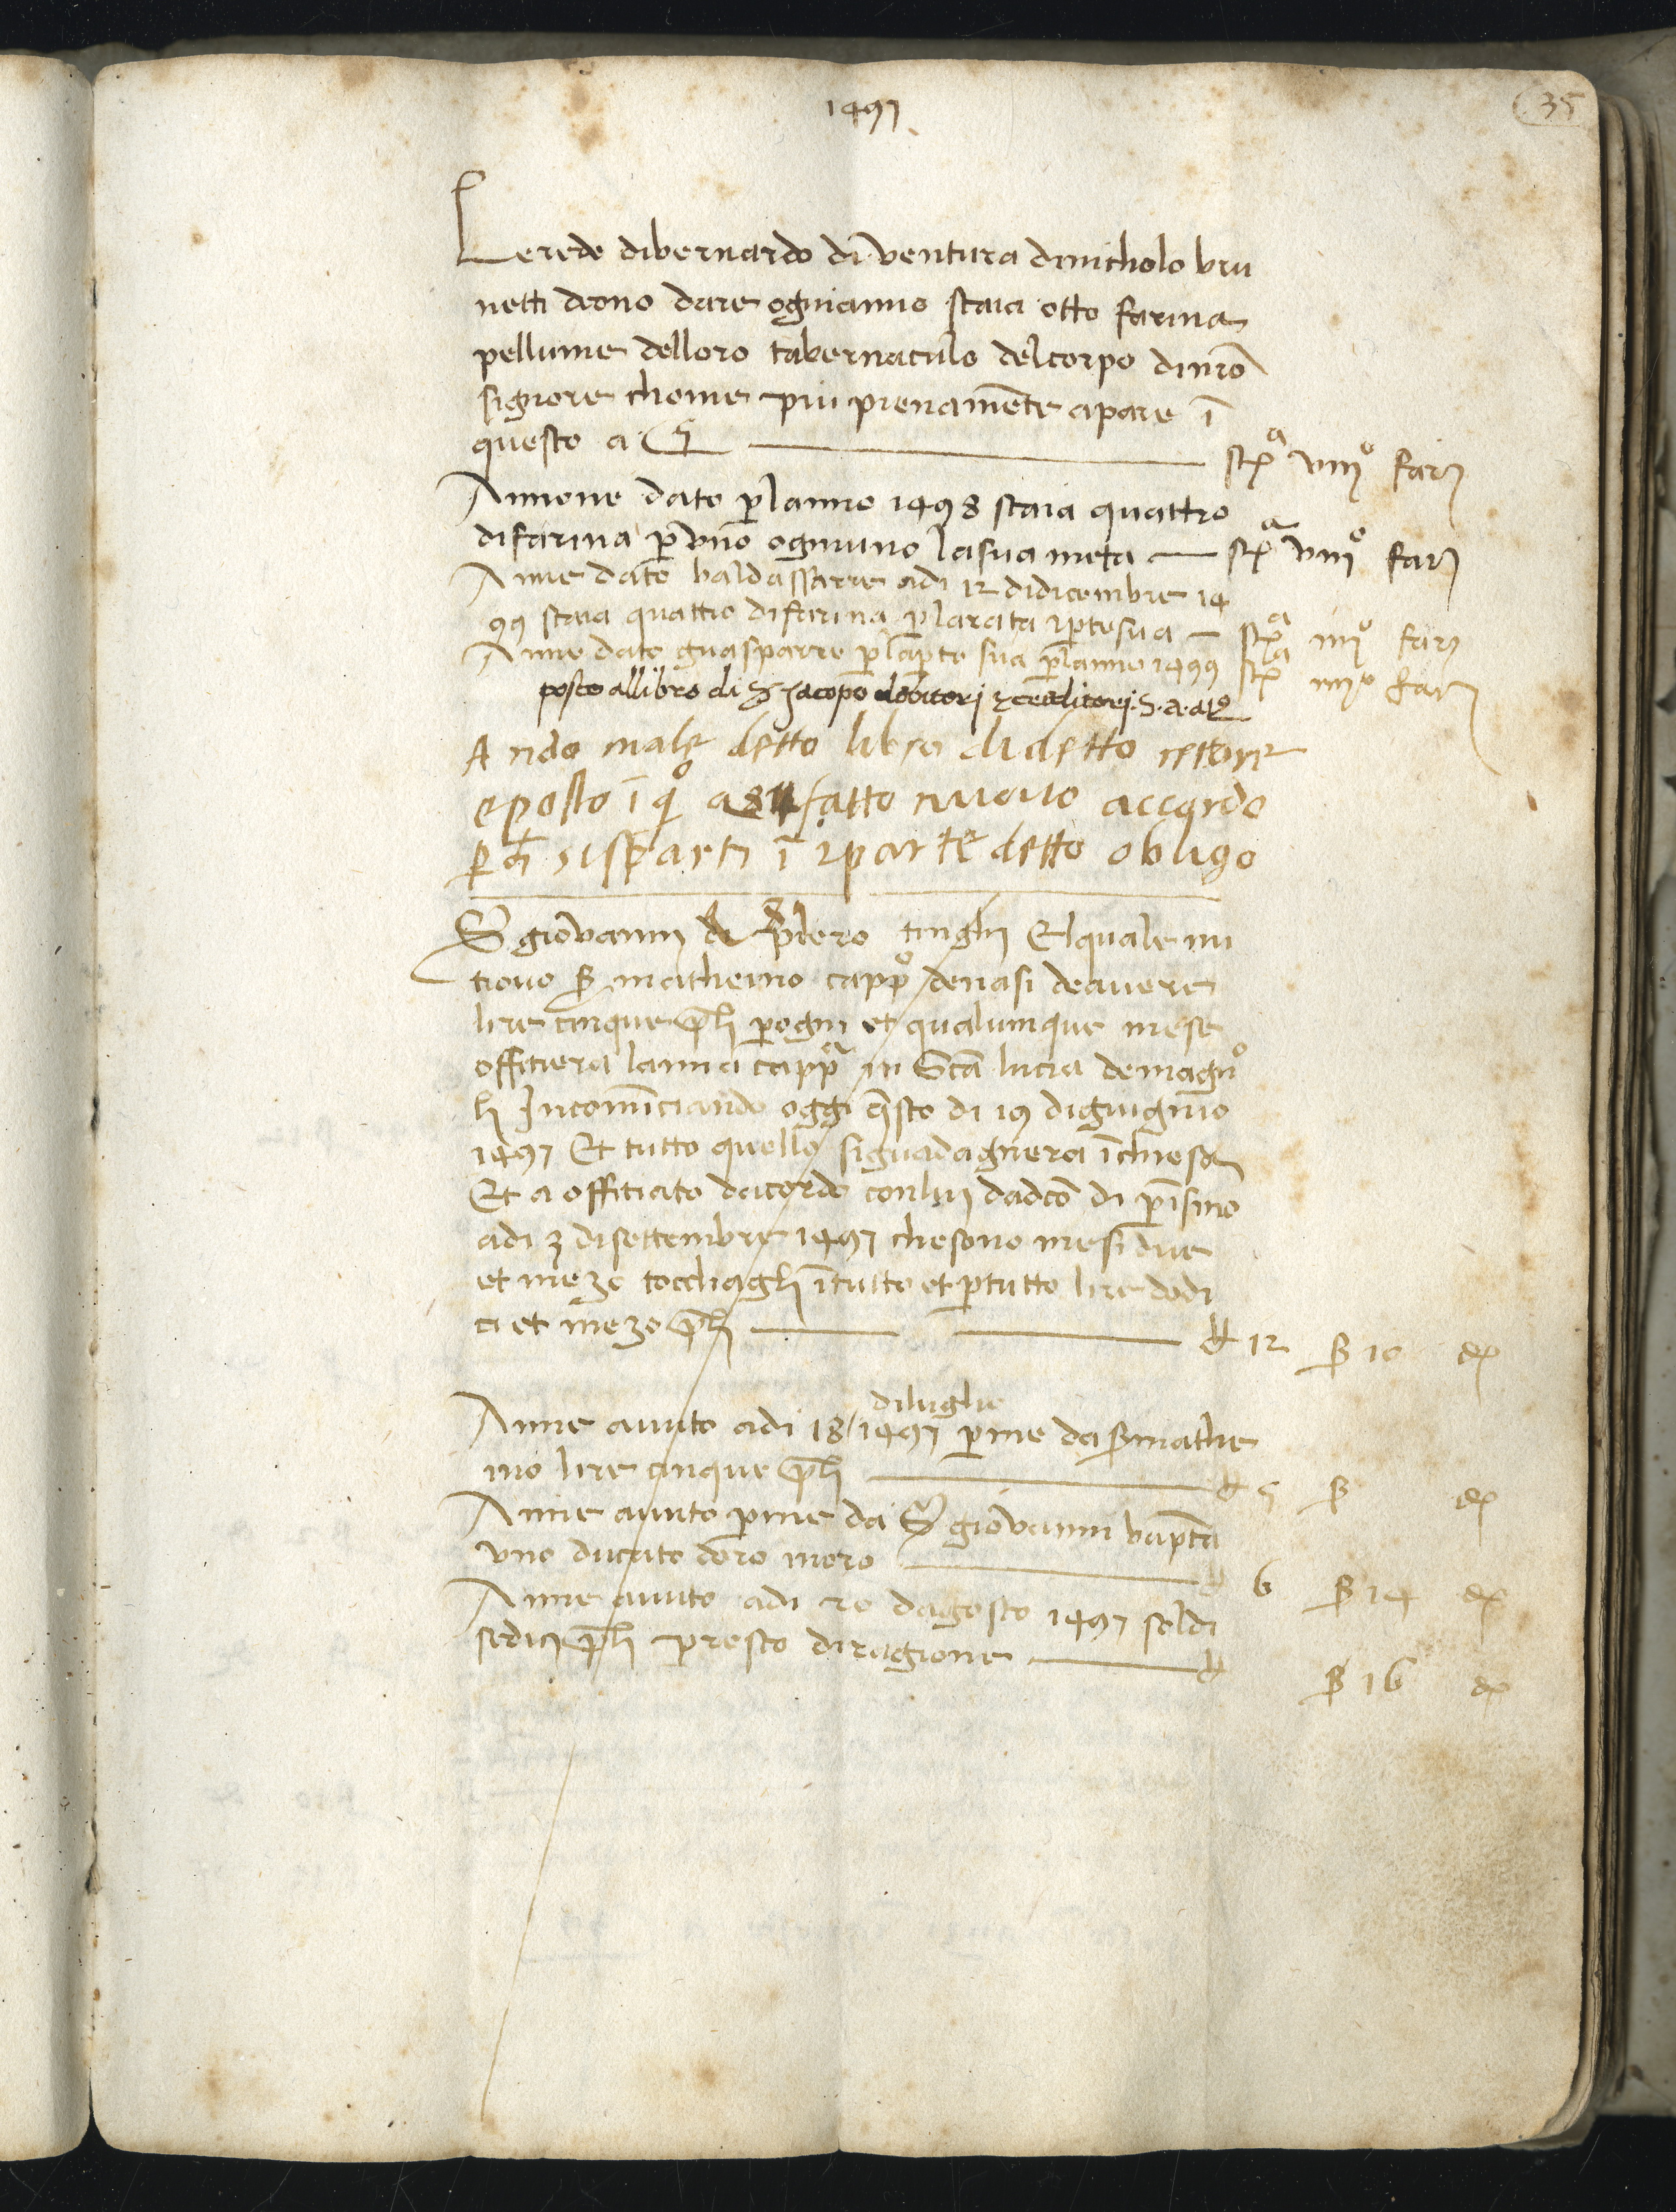 1497
35
Lerede dibernardo di ventura dinicholo bru
netti deono dare ognianno staia otto farina
pellume delloro tabernaculo delcorpo dinrō
signore chome piu pienamēte apare ī
questo a 5 stª viiiº fari
Annone dato planno 1498 staia quattro
difarina p uno ognuno lasua meta stª viiiº fari
Anne dato baldassarre adi 12 didicembre 14
99 staia quattro difarina p larata 2 pte sua stª iiiiº fari
Anne dato guasparre p lapte sua planno 1499 stª iiiiº fari
posto allibro di S Jacopo debitori 2 creditori S. a. a
Ando male detto libro didetto rettore
e posto ī qº a 81 fatto nuovo accordo
p ch sisparti ī 2 parte detto obligo
S giovanni di piero tinghi Elquale mi
trovo S matheino cappº denasi deavere
lire cinque pli pogni et qualunque mese
offitiera lanna cappª in Scā lucia demagnº
li Incomīciando oggi qsto di 19 digiugnio
1497 Et tutto quello siguadagnera īchiesa
Et a offitiato dacordo conlui dadcō di p īsino
adi 3 disettembre 1497 chesono mesi due
et mezo tocchagli ītutto et ptutto lire dodi
ci et mezo pli 12 ß 10 d
diluglio
Anne avuto adi 18 1497 pme da S mathe
ino lire cinque pli 5 ß d
Anne avuto pme da S giovanni baptā
uno ducato doro inoro 6 ß 14 d
Anne avuto adi 20 dagosto 1497 soldi
sedici pli presto diragione ß 16 d